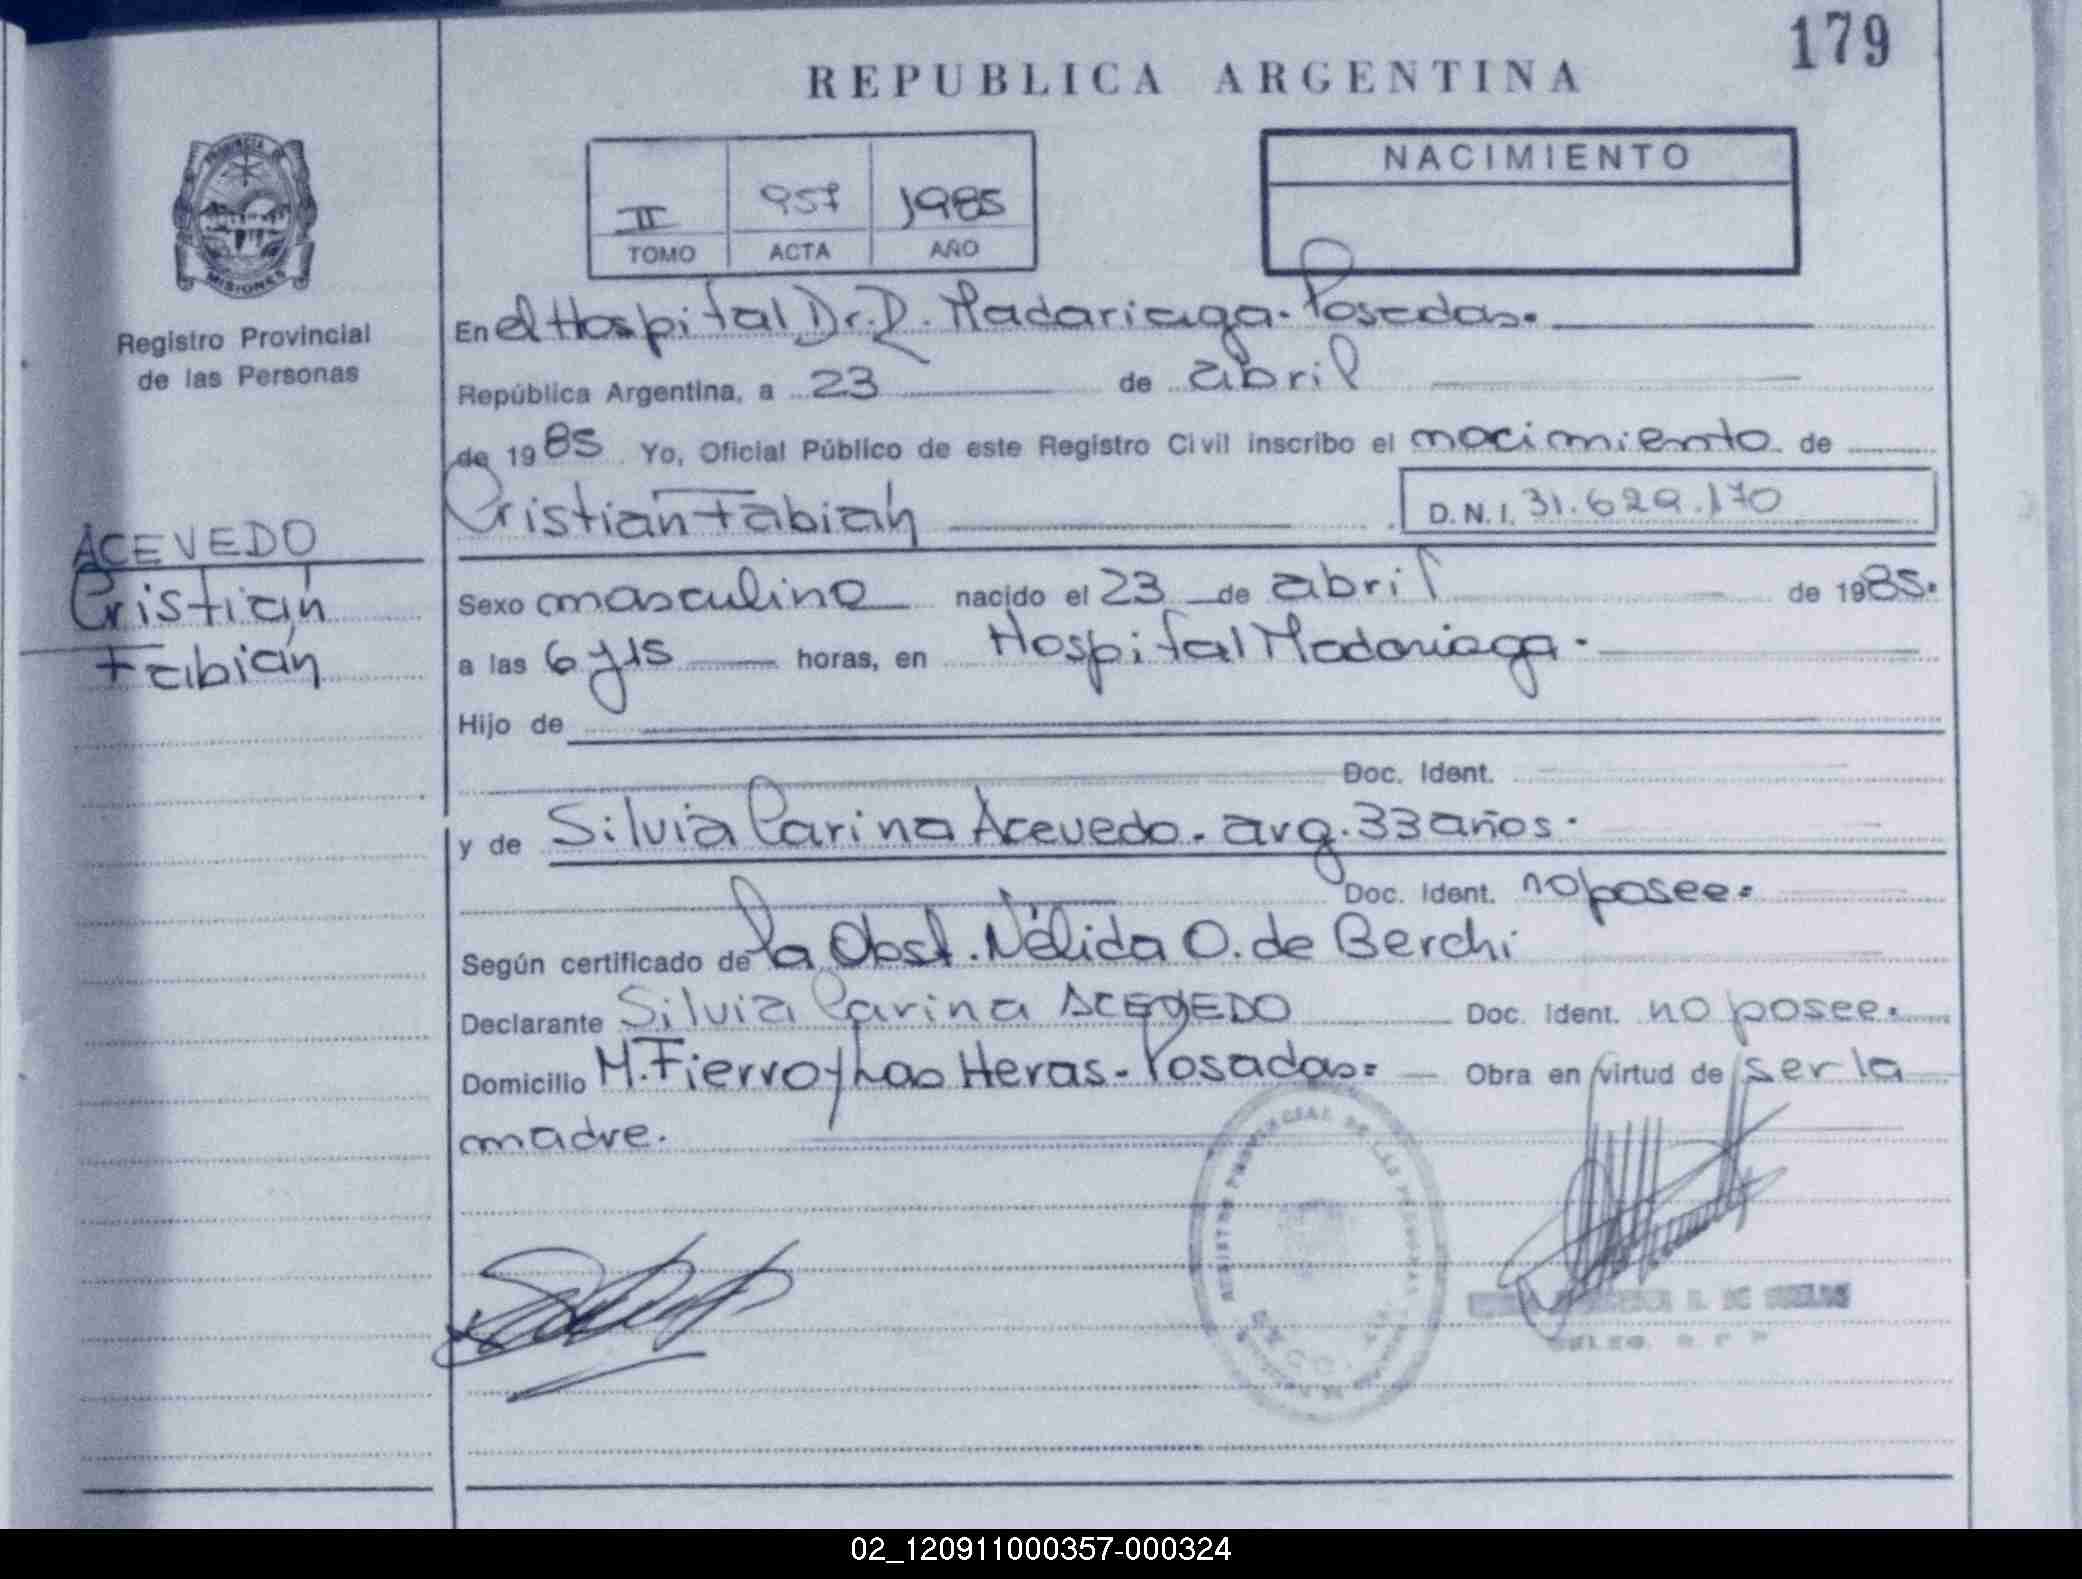 179
REPUBLICA ARGENTINA
NACIMIENTO
II 957 1985
TOMO ACTA AÑO
PROVINCIA DE
MISIONES
Registro Provincial
de las Personas
En el Hospital Dr. R. Madariaga. Posadas.
República Argentina, a 23 de abril
de 1985 Yo, Oficial Público de este Registro Civil inscribo el nacimiento de
Cristian Fabián D.N.I. 31.629.170
ACEVEDO
Cristián
Fabián
Sexo masculino nacido el 23 de abril de 1985.
a las 6 y 15 horas, en Hospital Madariaga.
Hijo de
Doc. Ident.
y de Silvia Carina Acevedo. arg. 33 años.
Doc. Ident. no posee.
Según certificado de la Obst. Nélida O. de Berchi
Declarante Silvia Carina ACEVEDO Doc. Ident. no posee.
Domicilio M. Fierro y Las Heras - Posadas Obra en virtud de ser la
madre.
REGISTRO PROVINCIAL DE LAS PERSONAS
02_120911000357-000324